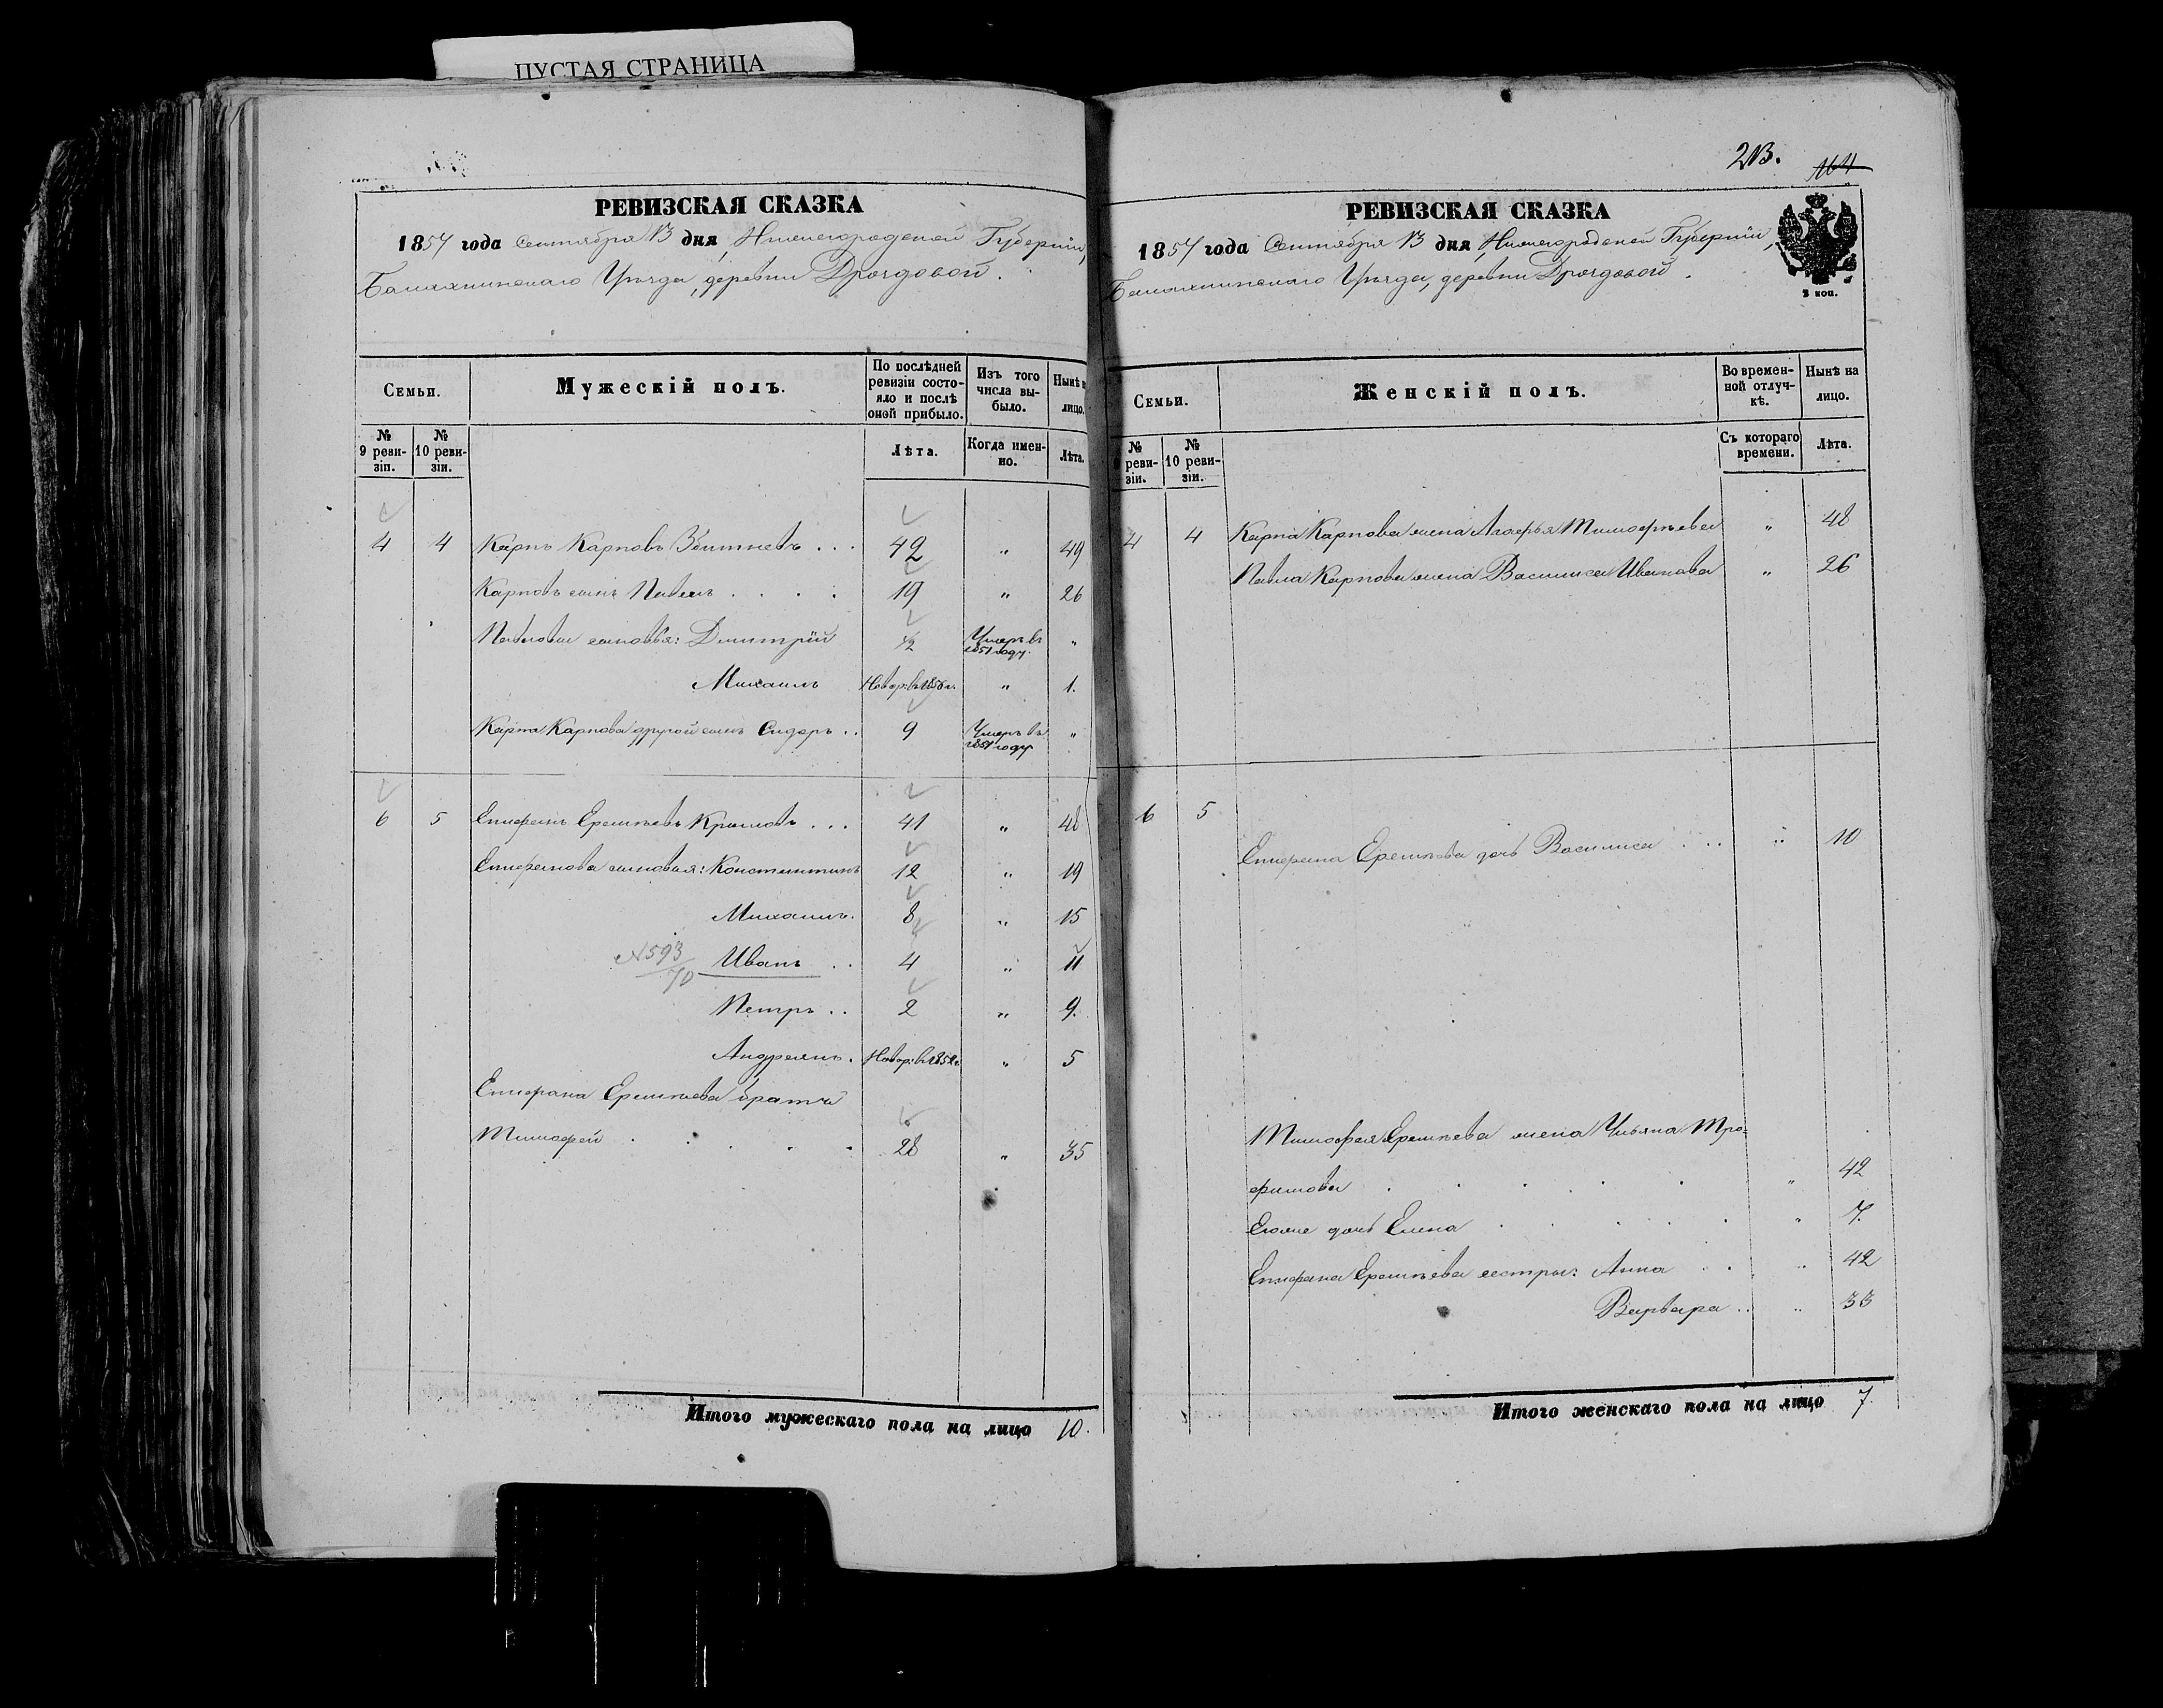 ПУСТАЯ СТРАНИЦА
РЕВИЗСКАЯ СКАЗКА
1857 года Сентября 13 дня, Нижегородской Губерніи,
Балахнинскаго Уѣзда, деревни Дроздовой.
Семьи.
Мужескій полъ.
По послѣдней ревизіи состояло и послѣ оной прибыло.
Изъ того числа выбыло.
Нынѣ на лицо.
№ 9 ревизіи.
№ 10 ревизіи.
Лѣта.
Когда именно.
Лѣта.
4 4 Карпъ Карповъ . . . 42 " 49
Карповъ сынъ Павелъ . . . . 19 " 26
Павловы сыновья: Дмитрій 1/2 Умеръ въ 1851 году. "
Михаилъ Новор: въ 1856 г. " 1.
Карпа Карпова другой сынъ Сидоръ . . 9 Умеръ въ 1851 году "
6 5 Епифанъ Еремѣевъ Крыловъ . . . 41 " 48
Епифановы сыновья: Константинъ 12 " 19
Михаилъ. 8 " 15
N 593/70 Иванъ . . 4 " 11
Петръ . . 2 " 9.
Андреянъ . Новор: въ 1852 г. " 5
Епифана Еремѣева братъ
Тимофей . . . . . 28 " 35
Итого мужескаго пола на лицо 10.
213. 164
РЕВИЗСКАЯ СКАЗКА
1857 года Сентября 13 дня, Нижегородской Губерніи,
Балахнинскаго Уѣзда, деревни Дроздовой.
3 коп.
Семьи.
Женскій полъ.
Во временной отлучкѣ.
Нынѣ на лицо.
№ 9 ревизіи.
№ 10 ревизіи.
Съ котораго времени.
Лѣта.
4 4 Карпа Карпова жена Агафья Тимофѣева " 48
Павла Карпова жена Василиса Иванова " 26
6 5 Епифана Еремѣева дочь Василиса . . . " 10
Тимофея Еремѣева жена Ульяна Тро=
фимова . . . . . " 42
Ея же дочь Елена . . . . . " 7.
Епифана Еремѣева сестры: Анна . . " 42
Варвара . . " 33
Итого женскаго пола на лицо 7.